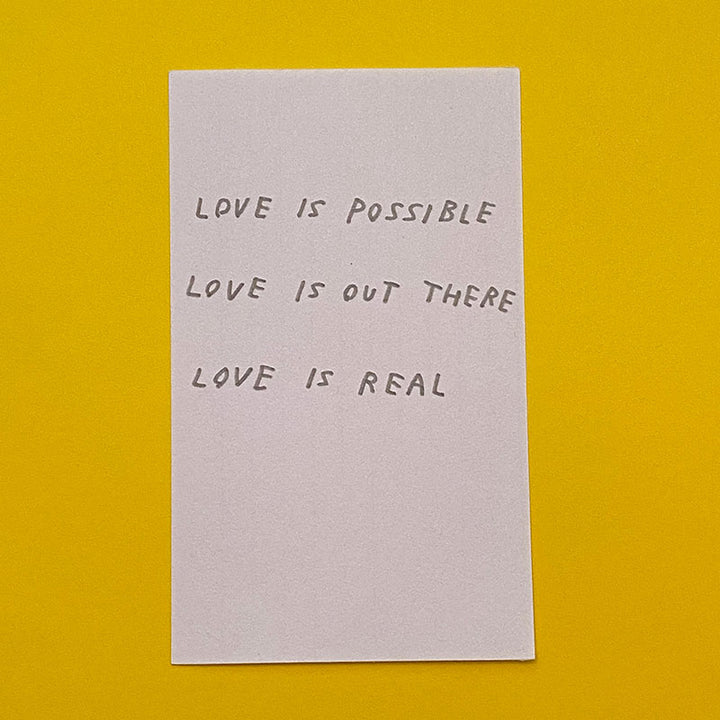 LOVE IS POSSIBLE
LOVE IS OUT THERE
LOVE IS REAL